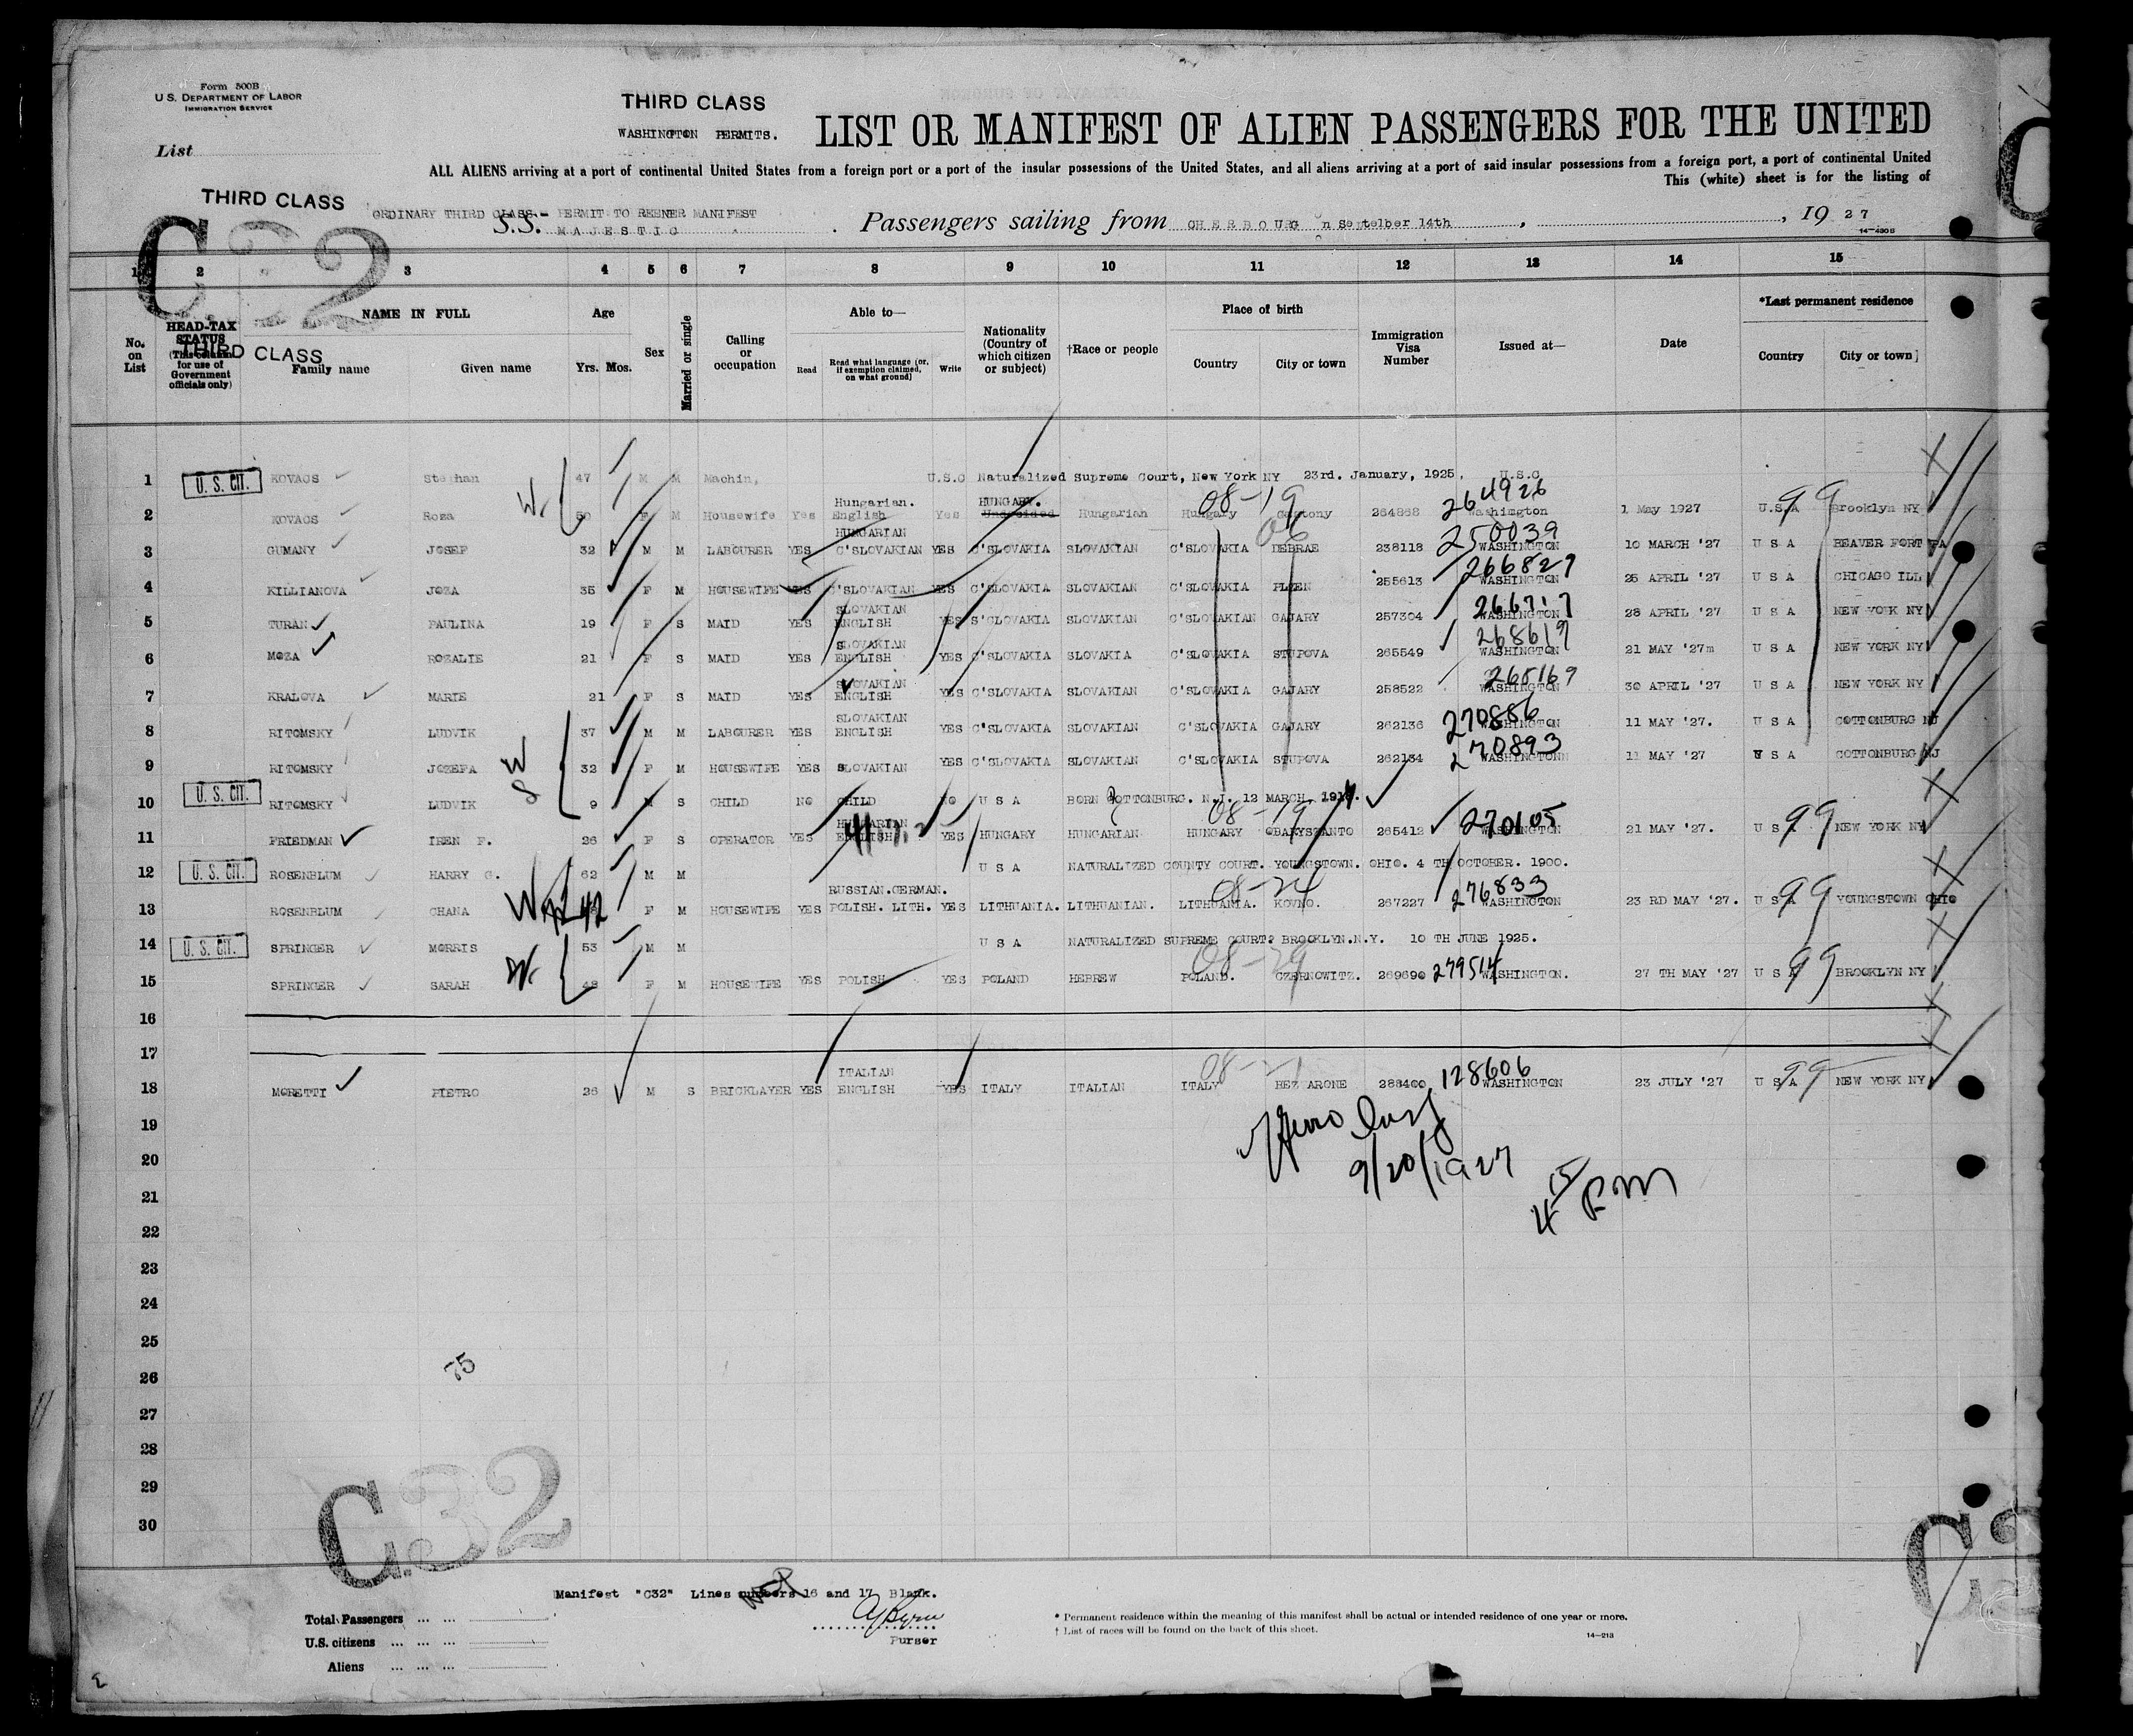 Form 500B
U. S. DEPARTMENT OF LABOR
IMMIGRATION SERVICE
List
THIRD CLASS
WASHINGTON PERMITS.
LIST OR MANIFEST OF ALIEN PASSENGERS FOR THE UNITED
ALL ALIENS arriving at a port of continental United States from a foreign port or a port of the insular possessions of the United States, and all aliens arriving at a port of said insular possessions from a foreign port, a port of continental United
This (white) sheet is for the listing of
THIRD CLASS
ORDINARY THIRD CLASS - PERMIT TO REENER MANIFEST
S.S. MAJESTIC
Passengers sailing from CHERBOURG on Septelber 14th, 1927
14-430B
C32
1 2 3 4 5 6 7 8 9 10 11 12 13 14 15
No. on List
HEAD-TAX STATUS (This column for use of Government officials only)
THIRD CLASS
NAME IN FULL
Family name Given name
Age
Yrs. Mos.
Sex
Married or single
Calling or occupation
Able to—
Read Read what language [or, if exemption claimed, on what ground] Write
Nationality (Country of which citizen or subject)
†Race or people
Place of birth
Country City or town
Immigration Visa Number
Issued at—
Date
*Last permanent residence
Country City or town]
1 U. S. CIT. KOVACS Stephan 47 M M Machin, U.S.C Naturalized Supreme Court, New York NY 23rd. January, 1925, U.S.C
W.
Hungarian. HUNGARY. 08-19 264926
2 KOVACS Roza 50 F M Housewife Yes English Yes Undecided Hungarian Hungary 264868 Washington 1 May 1927 U.S.A 99 Brooklyn NY
HUNGARIAN 06 250039
3 GUMANY JOSEP 32 M M LABOURER YES C'SLOVAKIAN YES C'SLOVAKIA SLOVAKIAN C'SLOVAKIA DEBRAE 238118 WASHINGTON 10 MARCH '27 U S A BEAVER FORT PA
266827
4 KILLIANOVA JOZA 35 F M HOUSEWIFE YES C'SLOVAKIAN YES C'SLOVAKIA SLOVAKIAN C'SLOVAKIA PLZEN 255613 WASHINGTON 25 APRIL '27 U S A CHICAGO ILL
SLOVAKIAN 266717
5 TURAN PAULINA 19 F S MAID YES ENGLISH YES S'CLOVAKIA SLOVAKIAN C'SLOVAKIAN GAJARY 257304 WASHINGTON 28 APRIL '27 U S A NEW YORK NY
SLOVAKIAN 268619
6 MOZA ROZALIE 21 F S MAID YES ENGLISH YES C'SLOVAKIA SLOVAKIA C'SLOVAKIA STUPOVA 265549 WASHINGTON 21 MAY '27m U S A NEW YORK NY
SLOVAKIAN 265169
7 KRALOVA MARIE 21 F S MAID YES ENGLISH YES C'SLOVAKIA SLOVAKIAN C'SLOVAKIA GAJARY 258522 WASHINGTON 30 APRIL '27 U S A NEW YORK NY
SLOVAKIAN 270886
8 RITOMSKY LUDVIK 37 M M LABOURER YES ENGLISH YES C'SLOVAKIA SLOVAKIAN C'SLOVAKIA GAJARY 262136 WASHINGTON 11 MAY '27. U S A COTTONBURG NJ
W 270893
9 RITOMSKY JOZEFA 32 F M HOUSEWIFE YES SLOVAKIAN YES C'SLOVAKIA SLOVAKIAN C'SLOVAKIA STUPOVA 262134 WASHINGTONN 11 MAY '27 U S A COTTONBURG NJ
S
10 U. S. CIT. RITOMSKY LUDVIK 9 M S CHILD NO CHILD NO U S A BORN COTTONBURG. N.J. 12 MARCH
HUNGARIAN 08-19 270105
11 FRIEDMAN IREN F. 26 F S OPERATOR YES ENGLISH YES HUNGARY HUNGARIAN HUNGARY 265412 WASHINGTON 21 MAY '27. U S A 99 NEW YORK NY
12 U. S. CIT. ROSENBLUM HARRY G. 62 M M U S A NATURALIZED COUNTY COURT. YOUNGSTOWN. OHIO. 4 TH OCTOBER. 1900.
RUSSIAN.GERMAN. 08-24 276833
13 ROSENBLUM CHANA W 42 F M HOUSEWIFE YES POLISH. LITH. YES LITHUANIA. LITHUANIAN. LITHUANIA. KOVNO. 267227 WASHINGTON 23 RD MAY '27. U S A 99 YOUNGSTOWN OHIO
14 U. S. CIT. SPRINGER MORRIS 53 M M U S A NATURALIZED SUPREME COURT? BROOKLYN.N.Y. 10 TH JUNE 1925.
W. 08-29 279514
15 SPRINGER SARAH 48 F M HOUSEWIFE YES POLISH YES POLAND HEBREW POLAND. CZERNOWITZ. 269690 WASHINGTON. 27 TH MAY '27 U S A 99 BROOKLYN NY
16
17
ITALIAN 128606
18 MORETTI PIETRO 26 M S BRICKLAYER YES ENGLISH YES ITALY ITALIAN ITALY ARONE 288400 WASHINGTON 23 JULY '27 U S A 99 NEW YORK NY
19
9/20/1927
20
4 15 P M
21
22
23
24
25
75
26
27
28
29
30
C32
C3
Manifest "C32" Lines numbers 16 and 17 Blank.
Purser
Total Passengers ... ...
U.S. citizens ... ... ...
Aliens ... ... ...
* Permanent residence within the meaning of this manifest shall be actual or intended residence of one year or more.
† List of races will be found on the back of this sheet.
14—213